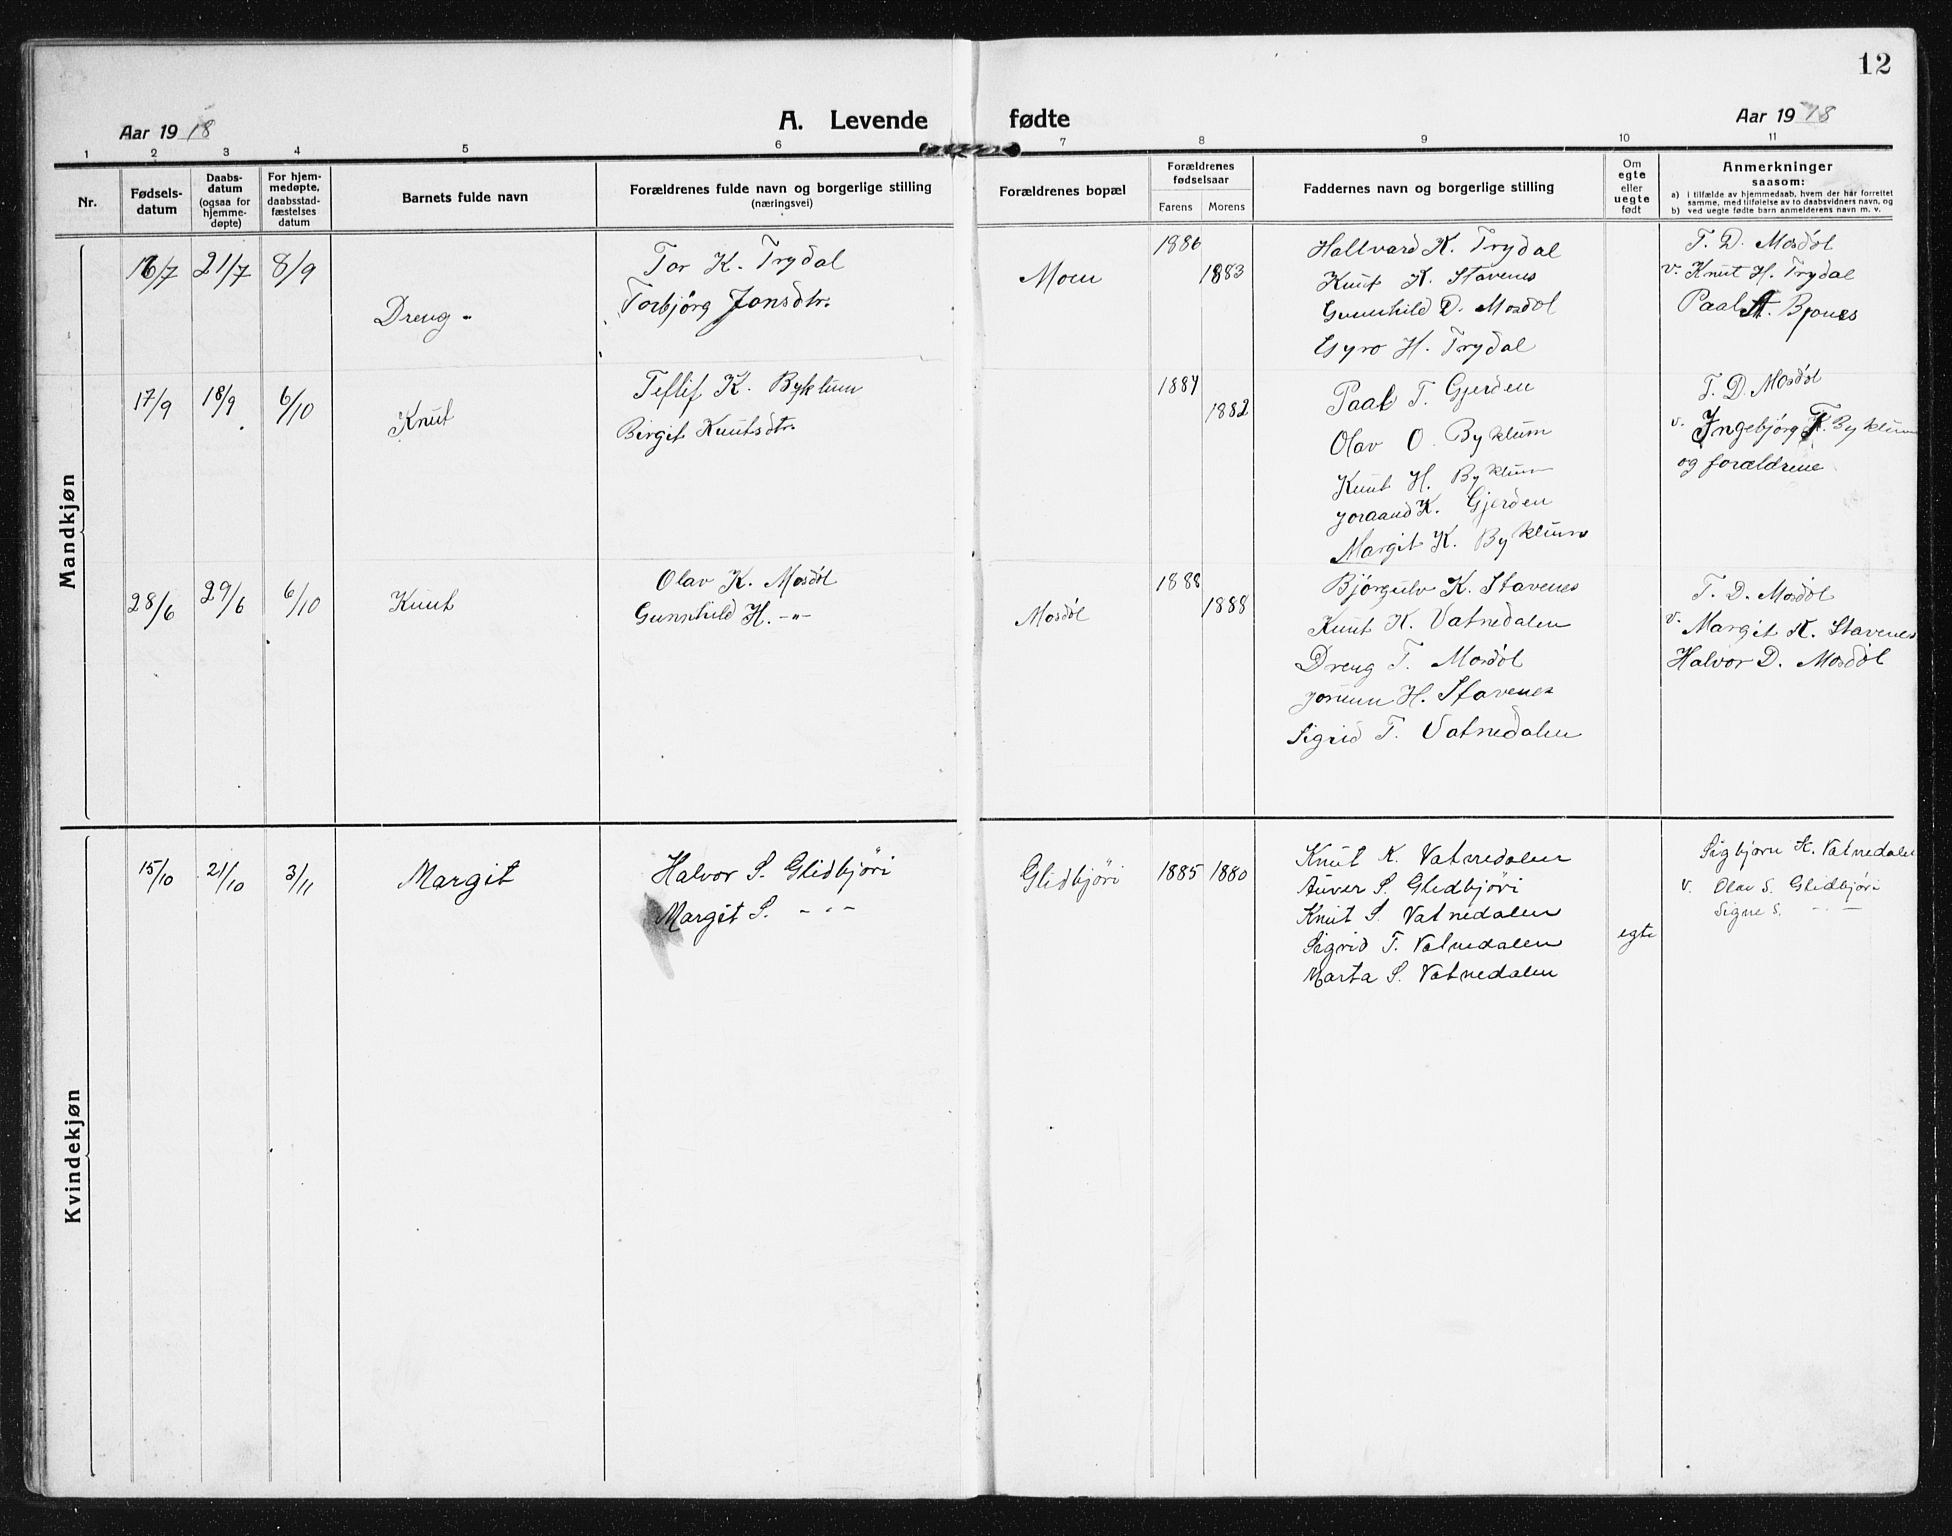 12
Aar 1918
A. Levende fødte
Aar 1918
1 2 3 4 5 6 7 8 9 10 11
Nr.
Fødsels-
datum
Daabs-
datum
(ogsaa for
hjemme-
døpte)
For hjem-
medøpte,
daabsstad-
fæstelses
datum
Barnets fulde navn
Forældrenes fulde navn og borgerlige stilling
(næringsvei)
Forældrenes bopæl
Forældrenes
fødselsaar
Farens Morens
Faddernes navn og borgerlige stilling
Om
egte
eller
uegte
født
Anmerkninger
saasom:
a) i tilfælde av hjemmedaab, hvem der har forrettet
samme, med tilføielse av to daabsvidners navn, og
b) ved uegte fødte barn anmelderens navn m. v.
Mandkjøn
16/7 21/7 8/9
Dreng
Tor K. Trydal
Torbjörg Jonsdtr.
Moen
1886
1883
Hallvard K. Trydal
Knut K. Stavenes
Gunnhild D. Mosdöl
Gyro H. Trydal
T. D. Mosdöl
v. Knut H. Trydal
Paal A. Bjones
17/9 18/9 6/10
Knut
Teflif K. Byklum
Birgit Knutsdtr.
1884
1882
Paal T. Gjerden
Olav O. Byklum
Knut H. Byklum
Joraand K. Gjerden
Margit K. Byklum
T. D. Mosdöl
v. Ingebjörg T. Byklum
og forældrene
28/6 29/6 6/10
Knut
Olav K. Mosdöl
Gunnhild H. -"-
Mosdöl
1888
1888
Bjørgulv K. Stavenes
Knut K. Vatnedalen
Dreng T. Mosdöl
Jorunn H. Stavenes
Sigrid T. Vatnedalen
T. D. Mosdöl
v. Margit K. Stavenes
Halvor D. Mosdöl
Kvindekjøn
15/10 21/10 3/11
Margit
Halvor S. Glidbjöri
Margit S. - " -
Glidbjöri
1885 1880
Knut K. Vatnedalen
Anver S. Glidbjöri
Knut S. Vatnedalen
Sigrid T. Vatnedalen
Marta S. Vatnedalen
egte
Sigbjørn K. Vatnedalen
v. Olav S. Glidbjöri
Signe S. - " -